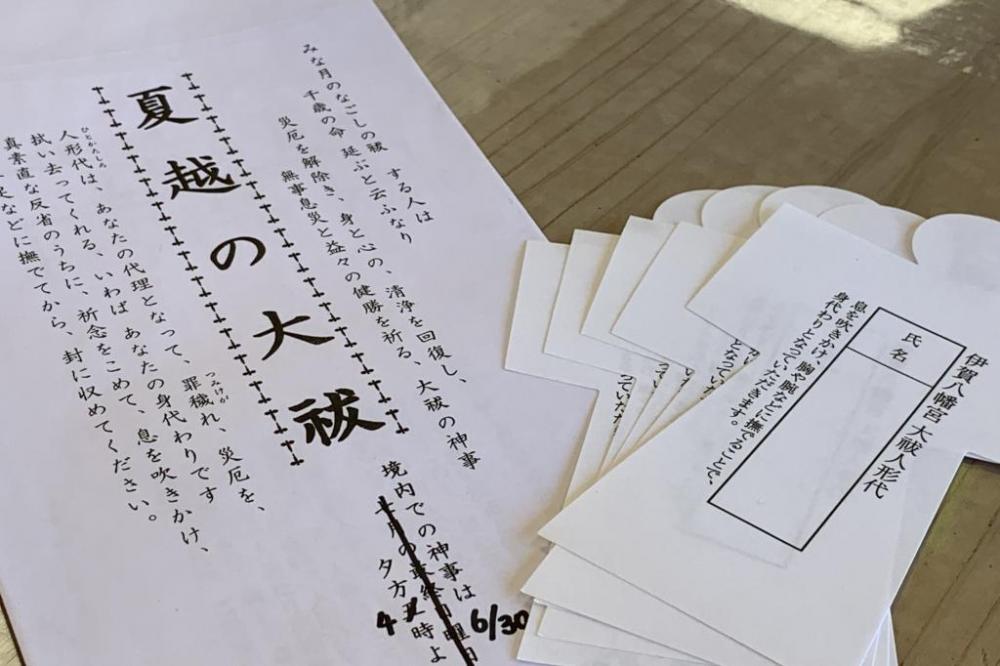 みな月のなこしの祓 する人は
千歳の命 延ぶと云ふなり
災厄を解除き、身と心の、清浄を回復し、
無事息災と益々の健勝を祈る、大祓の神事
境内での神事は
月の最終日曜日
6/30
夕方 時よ
4
夏越の大祓
人形代は、あなたの代理となって、罪穢れ、災厄を、
ひとかたしろ
つみけが
拭い去ってくれる、いわば あなたの身代わりです
真素直な反省のうちに、祈念をこめて、息を吹きかけ、
などに撫でてから、封に収めてください。
伊賀八幡宮 大祓人形代
氏名
息を吹きかけ、胸や腕などに撫でることで、
身代わりとなっていただきます。
となっていただ
となっていた